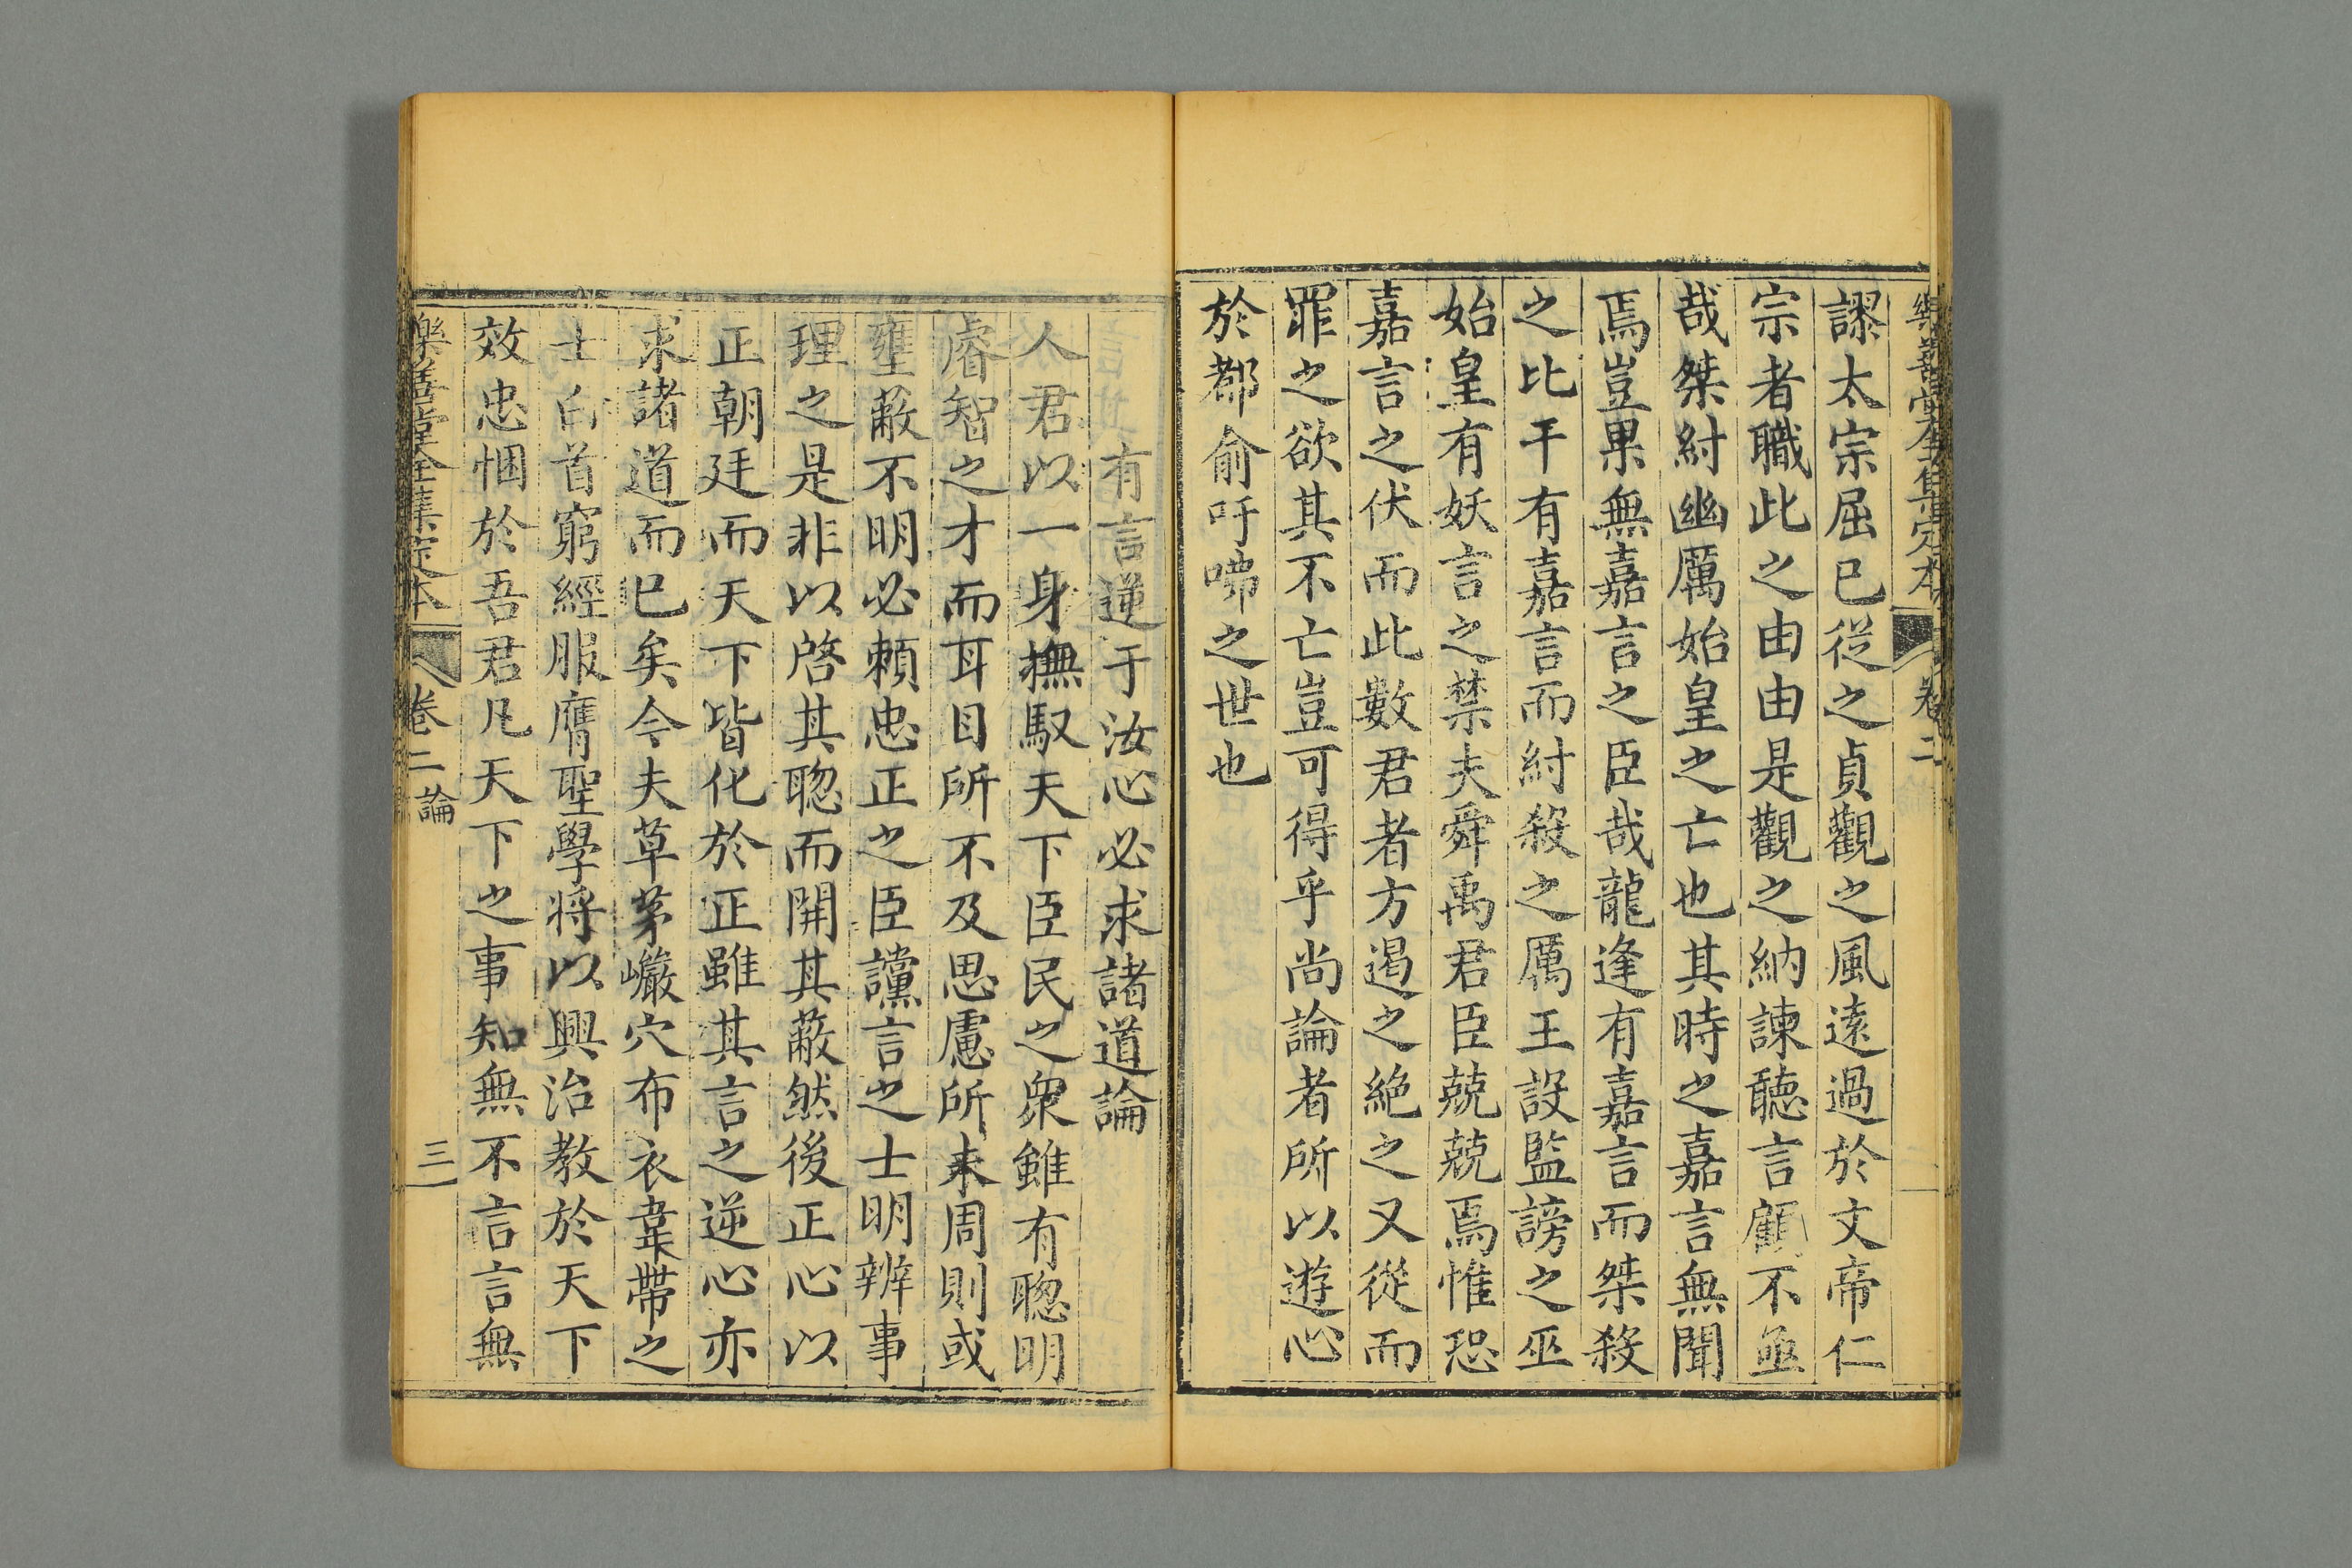 樂善堂全集定本 卷二
謬太宗屈已從之貞觀之風遠過於文帝仁
宗者職此之由由是觀之納諫聽言顧不亟
哉桀紂幽厲始皇之亡也其時之嘉言無聞
焉豈果無嘉言之臣哉龍逢有嘉言而桀殺
之比干有嘉言而紂殺之厲王設監謗之巫
始皇有妖言之禁夫舜禹君臣兢兢焉惟恐
嘉言之伏而此數君者方遏之絶之又從而
罪之欲其不亡豈可得乎尚論者所以遊心
於都俞吁咈之世也
有言逆于汝心必求諸道論
人君以一身撫馭天下臣民之衆雖有聰明
睿智之才而耳目所不及思慮所未周則或
壅蔽不明必賴忠正之臣讜言之士明辨事
理之是非以啓其聰而開其蔽然後正心以
正朝廷而天下皆化於正雖其言之逆心亦
求諸道而已矣今夫草茅巖穴布衣韋帶之
士白首窮經服膺聖學將以興治教於天下
效忠悃於吾君凡天下之事知無不言言無
樂善堂全集定本 卷二 論 三